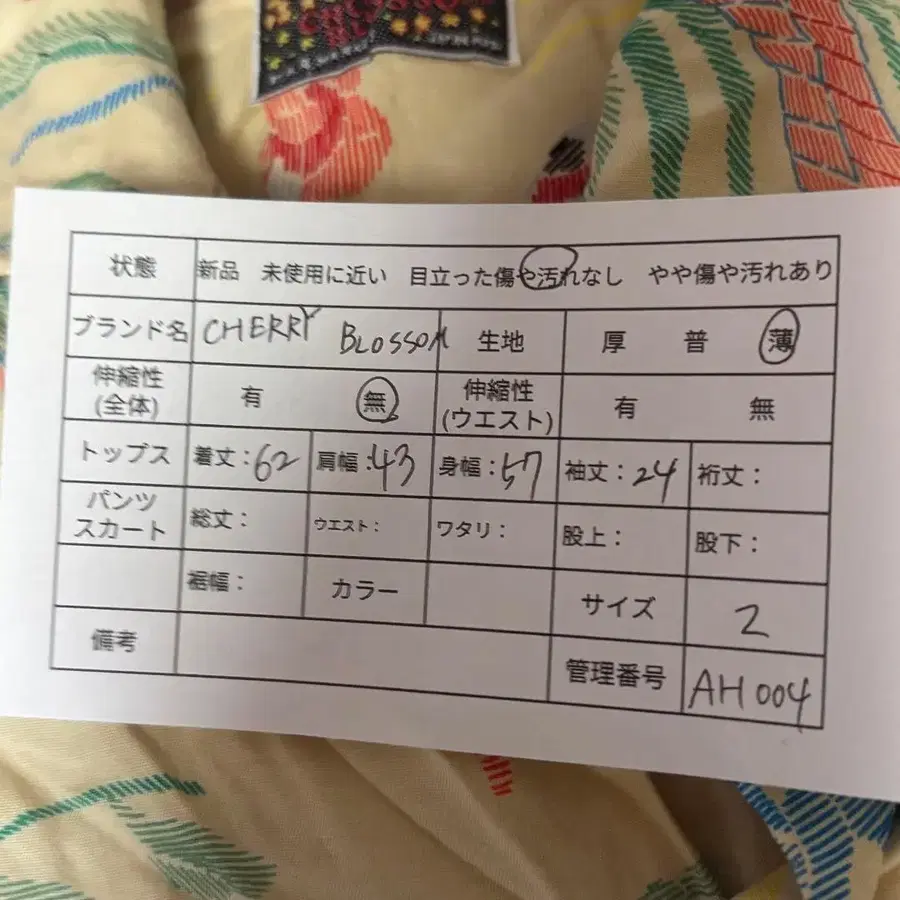 状態 新品 未使用に近い 目立った傷や汚れなし やや傷や汚れあり
ブランド名 CHERRY BLOSSOM 生地 厚 普 薄
伸縮性 (全体) 有 無 伸縮性 (ウエスト) 有 無
トップス 着丈：62 肩幅：43 身幅：57 袖丈：24 裄丈：
パンツ スカート 総丈： ウエスト： ワタリ： 股上： 股下：
裾幅： カラー サイズ 2
備考 管理番号 AH004